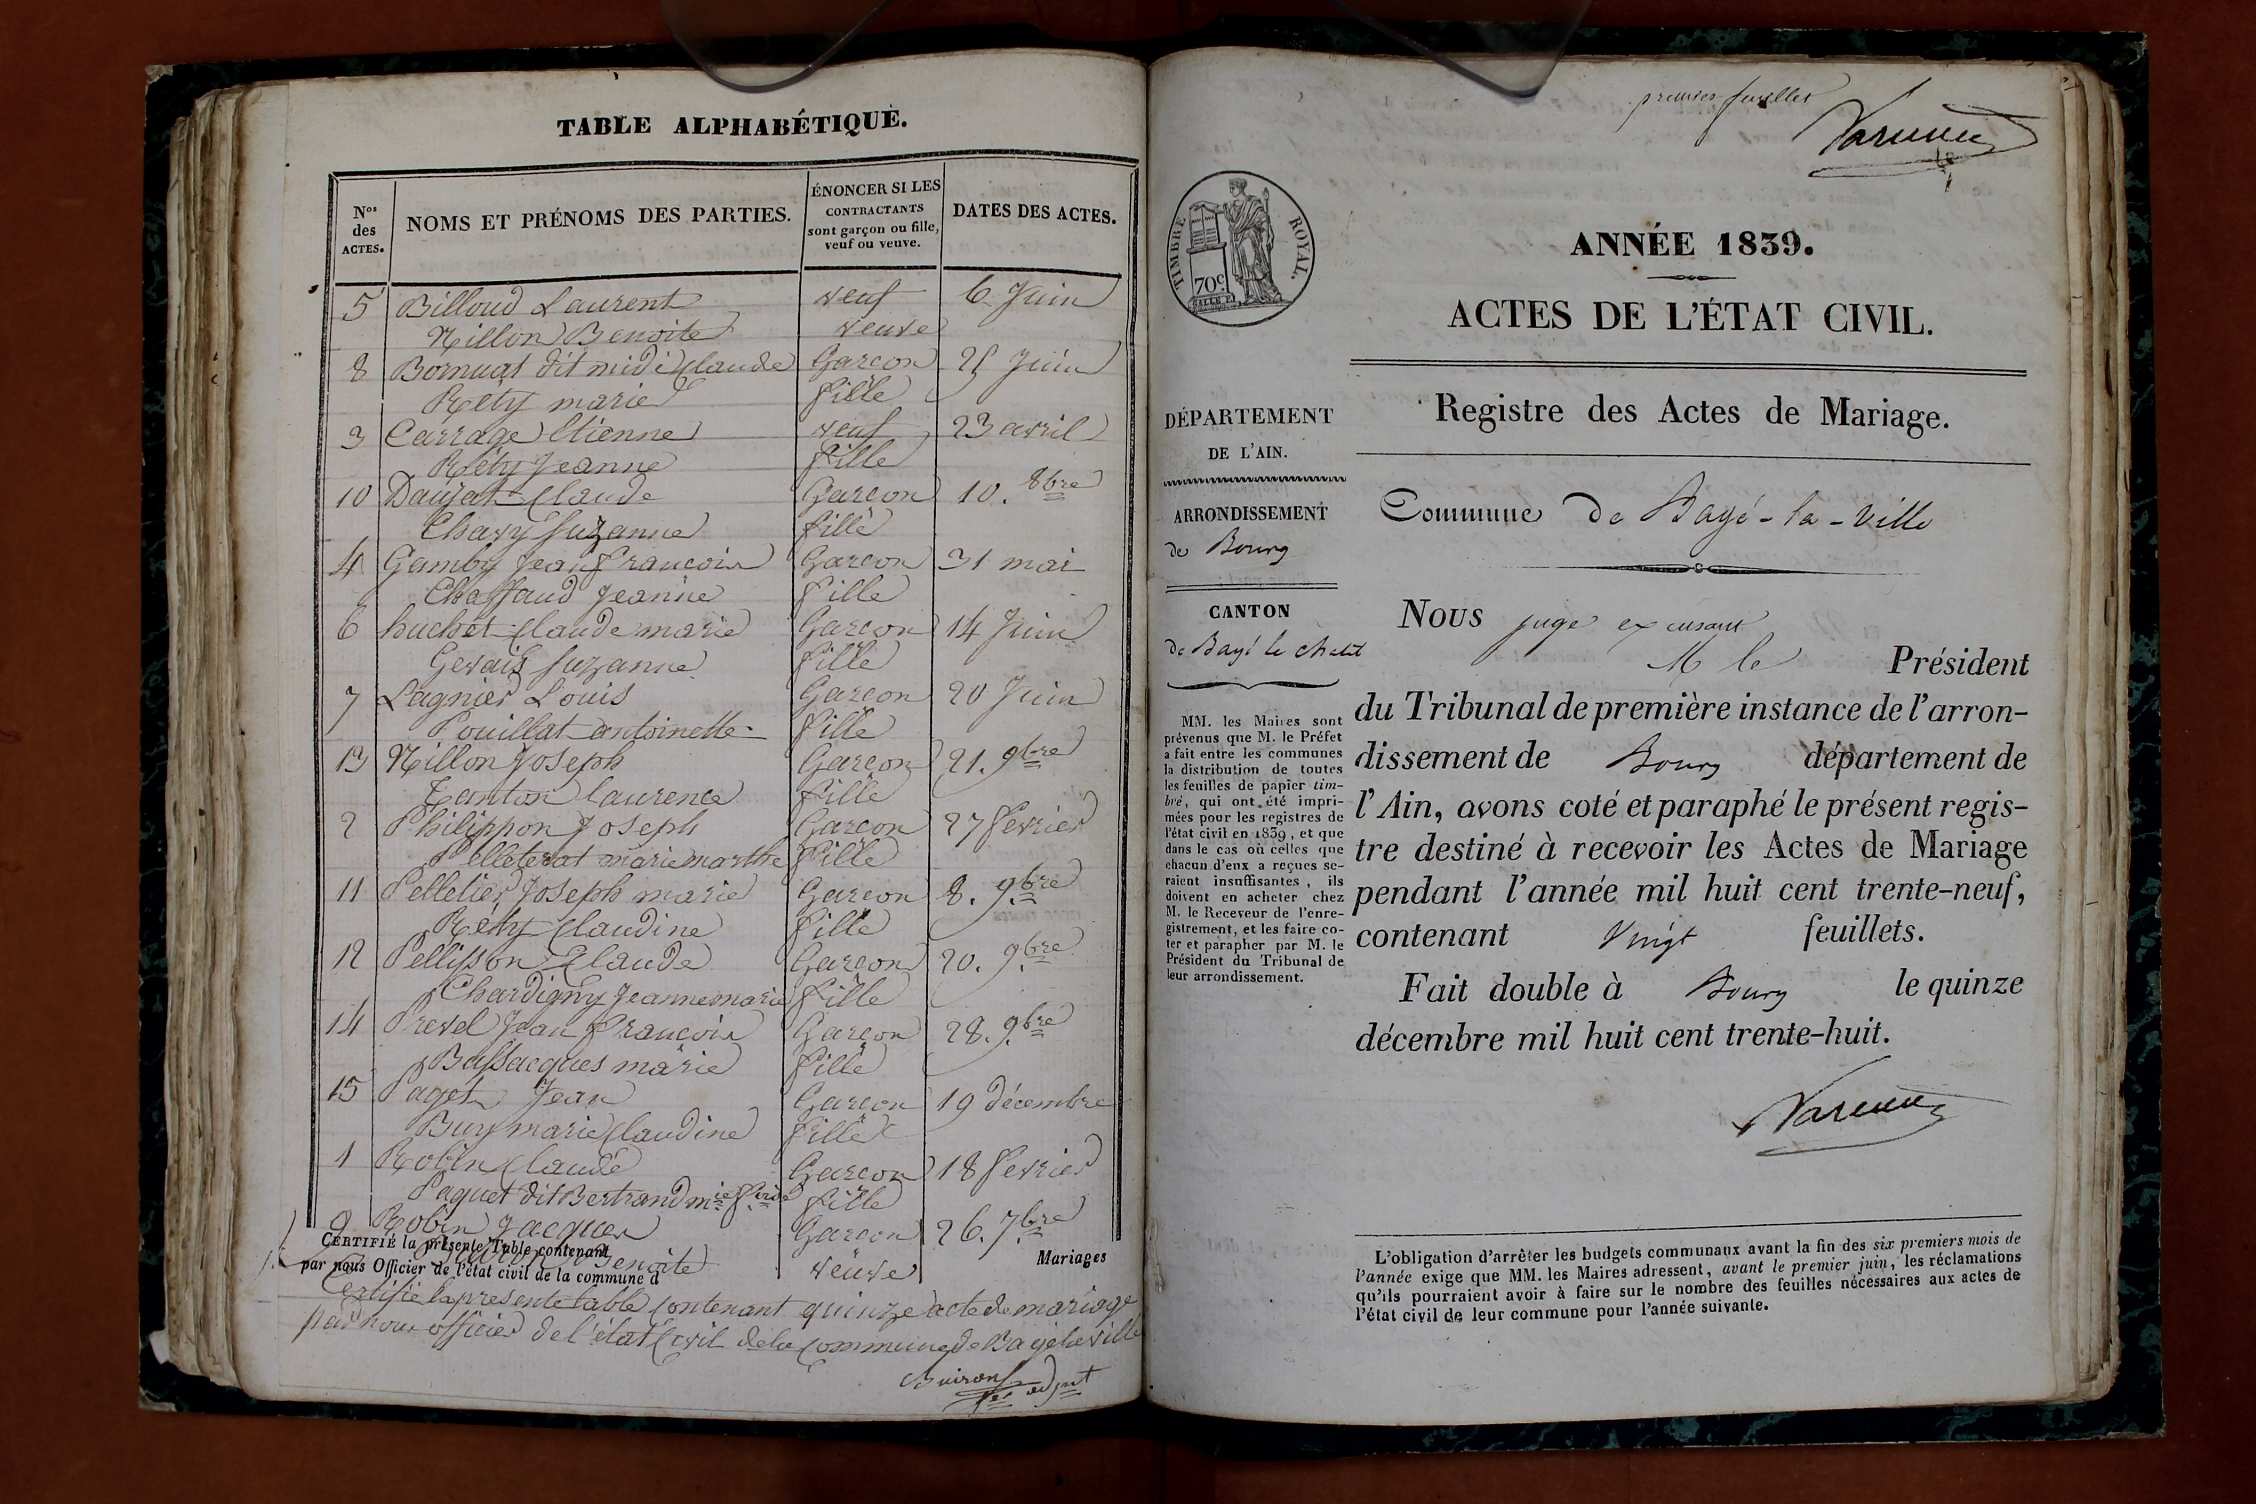 TABLE ALPHABÉTIQUE.
Nos des ACTES.
NOMS ET PRÉNOMS DES PARTIES.
ÉNONCER SI LES CONTRACTANTS sont garçon ou fille, veuf ou veuve.
DATES DES ACTES.
5 Billoud Laurent veuf 6 Juin
Nillon Benoite veuve
8 Bornuat dit midi Claude Garcon 25 Juin
Réty marie fille
3 Carrage Etienne veuf 23 avril
Réty Jeanne fille
10 Daujat Claude Garcon 10. 8bre
Chavy Suzanne fille
4 Gamby Jean francois Garcon 31 mai
Chaffaud Jeanne fille
6 huchet Claude marie Garcon 14 Juin
Gevais Suzanne fille
7 Lagnier Louis Garcon 20 Juin
Pouillat antoinette fille
13 Nillon Joseph Garcon 21. 9bre
Tanton laurence fille
2 Philippon Joseph Garcon 27 fevrier
Pelleterat marie marthe fille
11 Pelletier Joseph marie Garcon 8. 9bre
Réty Claudine fille
12 Pellisson Claude Garcon 20. 9bre
Chardigny Jeanne marie fille
14 Prevel Jean francois Garcon 28. 9bre
Bassacques marie fille
15 Paget Jean Garcon 19 décembre
Buy marie Claudine fille
1 Robin Claude Garcon 18 fevrier
Paquet dit Bertrand mie fille
9 Robin Jacques Garcon 26. 7bre
CERTIFIÉ la présente Table contenant Mariages
Benoite veuve
par nous Officier de l'état civil de la commune d
Certifié la presente table contenant quinze acte de mariage
par nous officier de l'état Civil de la commune de Bagé la ville
Buiron
1er adjnt
premier feuillet
Varenne
TIMBRE ROYAL.
70c.
ANNÉE 1839.
ACTES DE L'ÉTAT CIVIL.
Registre des Actes de Mariage.
DÉPARTEMENT
DE L'AIN.
ARRONDISSEMENT
de Bourg
CANTON
de Bagé le chatel
MM. les Maires sont
prévenus que M. le Préfet
a fait entre les communes
la distribution de toutes
les feuilles de papier tim-
bré, qui ont été impri-
mées pour les registres de
l'état civil en 1839, et que
dans le cas où celles que
chacun d'eux a reçues se-
raient insuffisantes, ils
doivent en acheter chez
M. le Receveur de l'enre-
gistrement, et les faire co-
ter et parapher par M. le
Président du Tribunal de
leur arrondissement.
Commune de Bagé-la-Ville
Nous juge excusant
M le Président
du Tribunal de première instance de l'arron-
dissement de Bourg département de
l'Ain, avons coté et paraphé le présent regis-
tre destiné à recevoir les Actes de Mariage
pendant l'année mil huit cent trente-neuf,
contenant Vingt feuillets.
Fait double à Bourg le quinze
décembre mil huit cent trente-huit.
Varenne
L'obligation d'arrêter les budgets communaux avant la fin des six premiers mois de
l'année exige que MM. les Maires adressent, avant le premier juin, les réclamations
qu'ils pourraient avoir à faire sur le nombre des feuilles nécessaires aux actes de
l'état civil de leur commune pour l'année suivante.